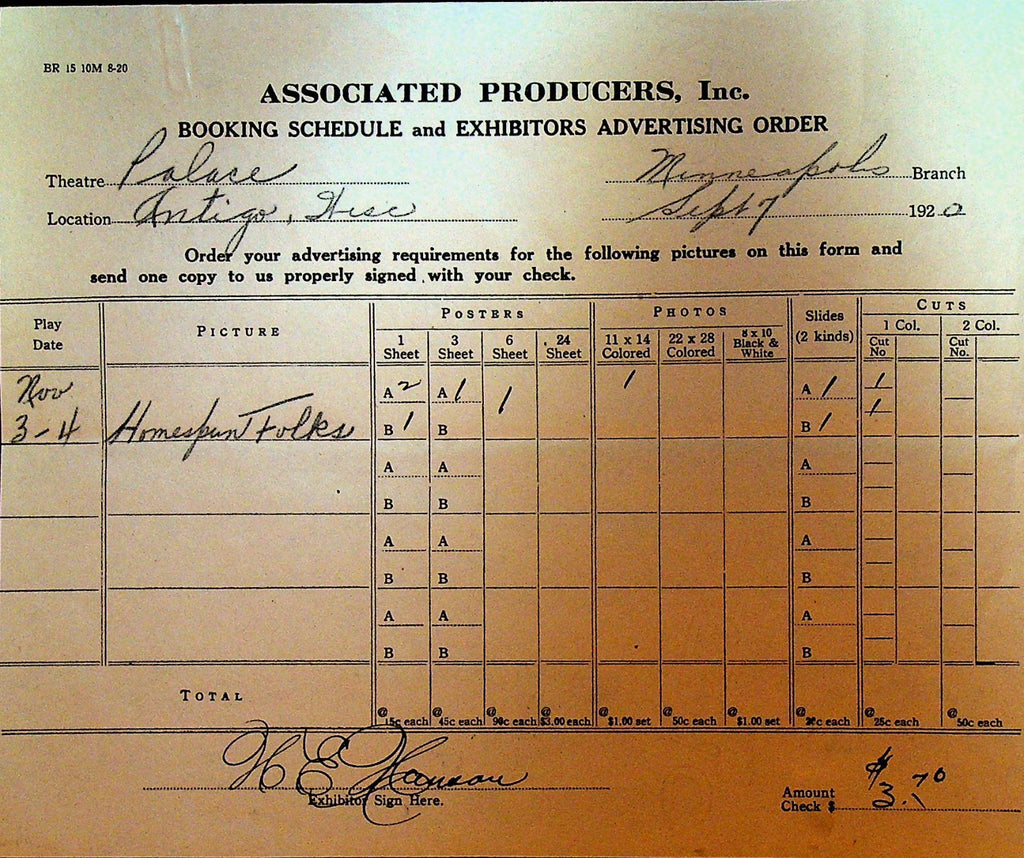 BR 15 10M 8-20
ASSOCIATED PRODUCERS, Inc.
BOOKING SCHEDULE and EXHIBITORS ADVERTISING ORDER
Theatre Palace Minneapolis Branch
Location Antigo, Wisc Sept 7 1920
Order your advertising requirements for the following pictures on this form and
send one copy to us properly signed with your check.
Play Date PICTURE POSTERS PHOTOS Slides (2 kinds) CUTS
1 Sheet 3 Sheet 6 Sheet 24 Sheet 11 x 14 Colored 22 x 28 Colored 8 x 10 Black & White 1 Col. 2 Col.
Cut No Cut No.
Nov A 2 A 1 1 1 A 1 1
3-4 Homespun Folks B 1 B B 1 1
A A A
B B B
A A A
B B B
A A A
B B B
TOTAL @ 15c each 45c each @ 90c each @ $3.00 each @ $1.00 set @ 50c each @ $1.00 set @ 20c each @ 25c each @ 50c each
H E Hanson
Exhibitor Sign Here.
Amount Check $ $3.70